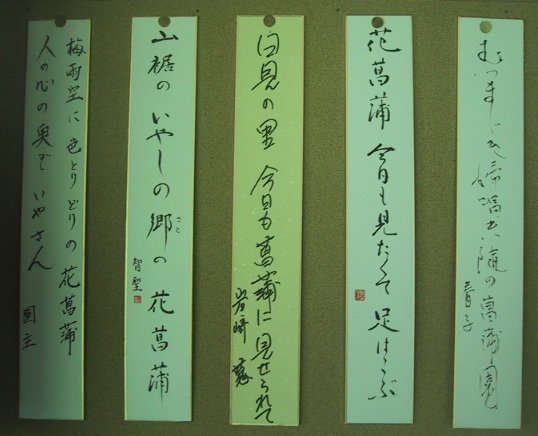 むつまじき 婦唱夫随の菖蒲園
花菖蒲 今日も見たくて 足はこぶ
白見の里 今日も菖蒲に見せられて
岩崎
山裾の いやしの郷の 花菖蒲
さと
智聖
梅雨空に 色とりどりの 花菖蒲
人の心の奥 いやさん
園主